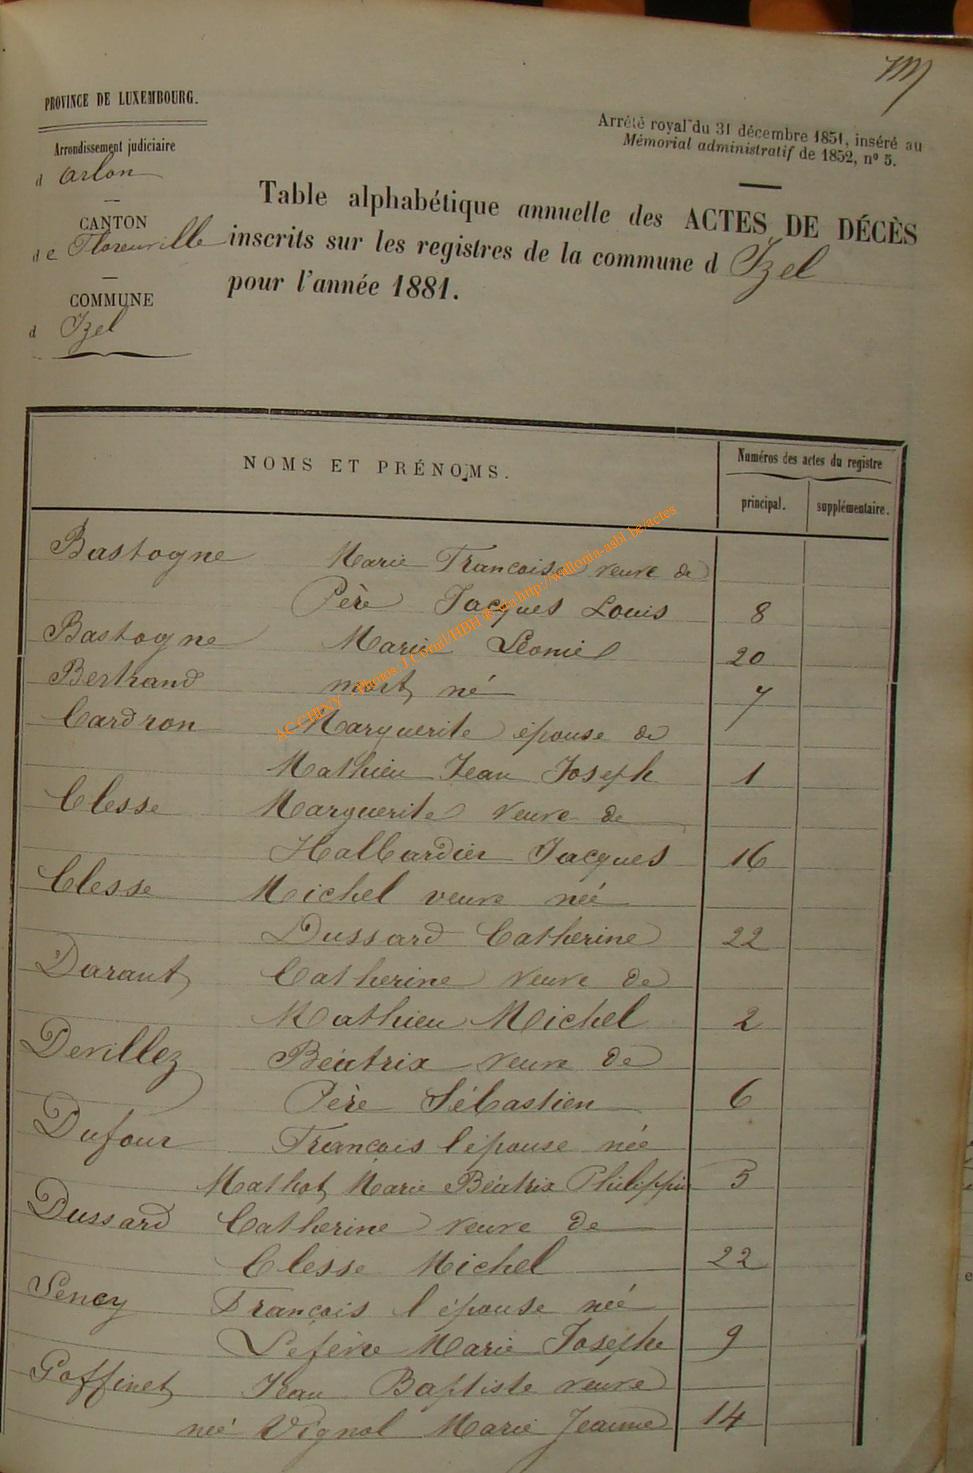 PROVINCE DE LUXEMBOURG.
Arrondissement judiciaire
d Arlon
CANTON
de Florenville
COMMUNE
d Izel
Arrêté royal du 31 décembre 1851, inséré au
Mémorial administratif de 1852, nº 5.
Table alphabétique annuelle des ACTES DE DÉCÈS
inscrits sur les registres de la commune d Izel
pour l'année 1881.
NOMS ET PRÉNOMS.
Numéros des actes du registre
principal. supplémentaire.
Bastogne Marie Françoise veuve de
Père Jacques Louis 8
Bastogne Marie Léonie 20
Bertrand mort né 7
Cardron Marguerite épouse de
Mathieu Jean Joseph 1
Clesse Marguerite veuve de
Hallbardier Jacques 16
Clesse Michel veuve née
Dussard Catherine 22
Daraut Catherine veuve de
Mathieu Michel 2
Devillez Béatrix veuve de
Père Sébastien 6
Dufour François l'épouse née
Mathot Marie Béatrix Philippine 5
Dussard Catherine veuve de
Clesse Michel 22
François l'épouse née
Lefèvre Marie Josephe 9
Goffinet Jean Baptiste veuve
née Vignol Marie Jeanne 14
ACCHINY Photos
http://wallonia-asbl.be/actes